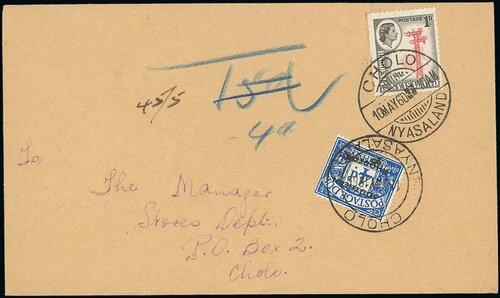 POSTAGE
1D
CHOLO
10MAY60
NYASALAND
45/5
15d
4d
POSTAGE DUE
CHOLO
To
The Manager
Stores Dept.
P.O. Box 2.
Cholo.